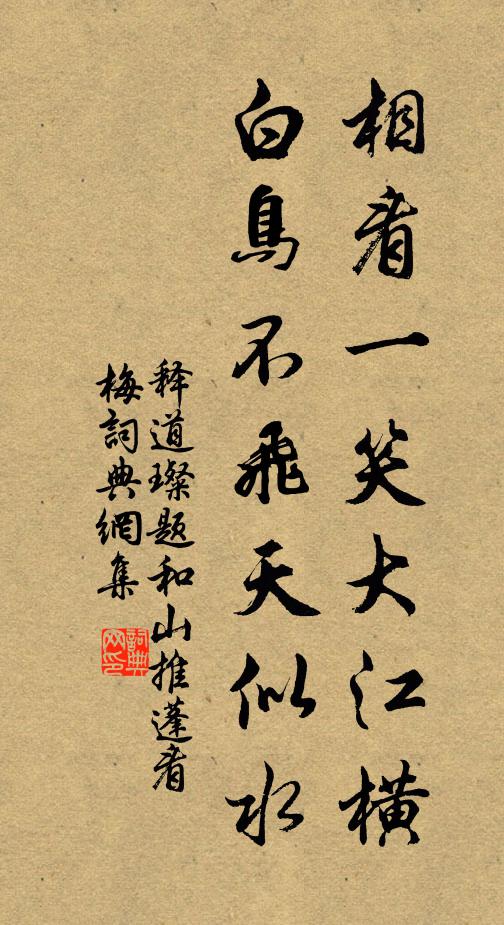 相看一笑大江橫
白鳥不飛天似水
释道璨题和山推蓬看
梅詞典網集
詞典
网印